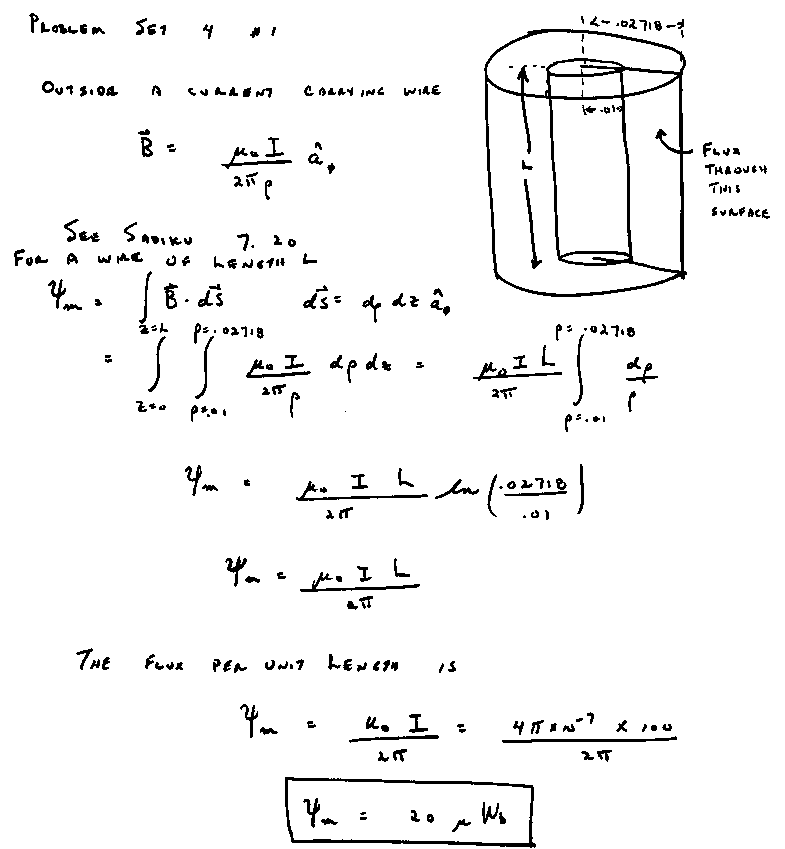 PROBLEM SET 4 #1
<-- .02718 -->
OUTSIDE A CURRENT CARRYING WIRE
.010
B⃗ = μ₀ I / 2π ρ â_φ
L
FLUX
THROUGH
THIS
SURFACE
SEE SADIKU 7.20
FOR A WIRE OF LENGTH L
Ψₘ = ∫ B⃗ · dS⃗ dS⃗ = dρ dz â_φ
= ∫_{z=0}^{z=L} ∫_{ρ=.01}^{ρ=.02718} μ₀ I / 2π ρ dρ dz = μ₀ I L / 2π ∫_{ρ=.01}^{ρ=.02718} dρ / ρ
Ψₘ = μ₀ I L / 2π ln (.02718 / .01)
Ψₘ = μ₀ I L / 2π
THE FLUX PER UNIT LENGTH IS
Ψₘ = μ₀ I / 2π = 4π × 10⁻⁷ × 100 / 2π
Ψₘ = 20 μ Wb